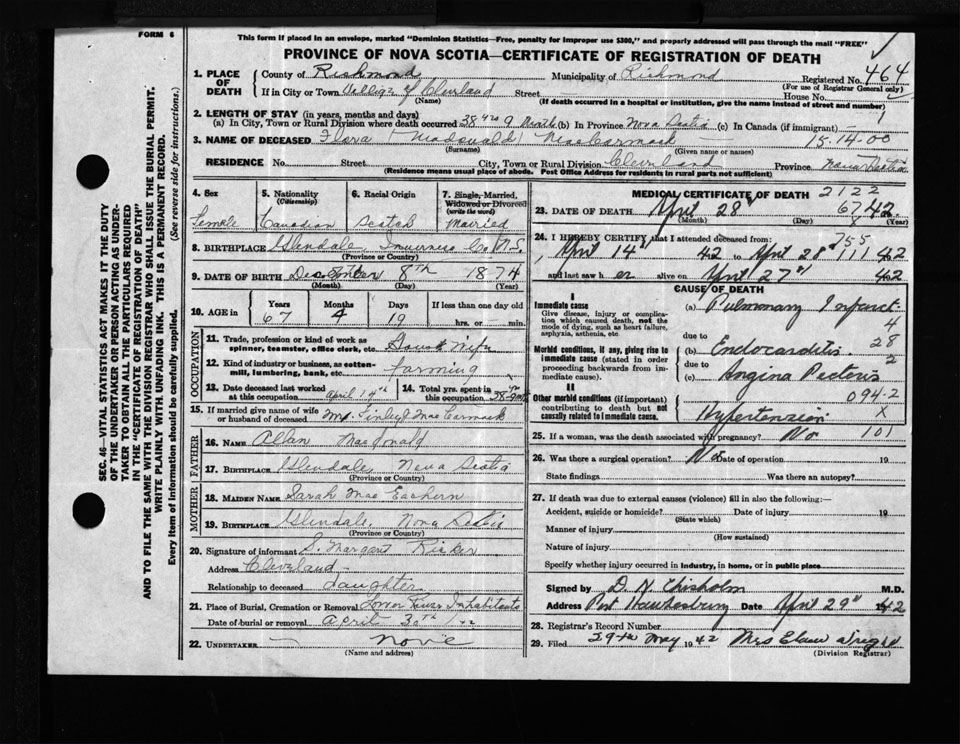 FORM 6
This form if placed in an envelope, marked "Dominion Statistics—Free, penalty for improper use $300," and properly addressed will pass through the mail "FREE"
PROVINCE OF NOVA SCOTIA—CERTIFICATE OF REGISTRATION OF DEATH
SEC. 46—VITAL STATISTICS ACT MAKES IT THE DUTY
OF THE UNDERTAKER OR PERSON ACTING AS UNDER-
TAKER TO OBTAIN ALL THE PARTICULARS REQUIRED
IN THE "CERTIFICATE OF REGISTRATION OF DEATH"
AND TO FILE THE SAME WITH THE DIVISION REGISTRAR WHO SHALL ISSUE THE BURIAL PERMIT.
WRITE PLAINLY WITH UNFADING INK. THIS IS A PERMANENT RECORD.
Every Item of Information should be carefully supplied. (See reverse side for instructions.)
1. PLACE OF DEATH
County of Richmond Municipality of Richmond Registered No. 464
(For use of Registrar General only)
If in City or Town Village of Cleveland Street House No.
(Name) (If death occurred in a hospital or institution, give the name instead of street and number)
2. LENGTH OF STAY (in years, months and days)
(a) In City, Town or Rural Division where death occurred 38 yrs 9 Month (b) In Province Nova Scotia (c) In Canada (if immigrant)
3. NAME OF DECEASED Flora Macdonald MacCormack 15-14-00
(Surname) (Given name or names)
RESIDENCE No. Street City, Town or Rural Division Cleveland Province Nova Scotia
(Residence means usual place of abode. Post Office Address for residents in rural parts not sufficient)
4. Sex Female
5. Nationality (Citizenship) Canadian
6. Racial Origin Scotch
7. Single, Married, Widowed or Divorced (write the word) Married
8. BIRTHPLACE Glendale Inverness Co N.S.
(Province or Country)
9. DATE OF BIRTH December 8th 1874
(Month) (Day) (Year)
10. AGE in Years 67 Months 4 Days 19 If less than one day old hrs. or min.
OCCUPATION
11. Trade, profession or kind of work as spinner, teamster, office clerk, etc. House Wife
12. Kind of industry or business, as cotton-mill, lumbering, bank, etc. farming
13. Date deceased last worked at this occupation April 14th
14. Total yrs. spent in this occupation 38
15. If married give name of wife or husband of deceased Mr. Finlay MacCormack
FATHER
16. NAME Allan Macdonald
17. BIRTHPLACE Glendale Nova Scotia
(Province or Country)
MOTHER
18. MAIDEN NAME Sarah Mac Eachern
19. BIRTHPLACE Glendale, Nova Scotia
(Province or Country)
20. Signature of informant S. Margaret Ricker
Address Cleveland
Relationship to deceased daughter
21. Place of Burial, Cremation or Removal Lower River Inhabitants
Date of burial or removal April 30th /42
22. UNDERTAKER None
(Name and address)
MEDICAL CERTIFICATE OF DEATH 2122
23. DATE OF DEATH April 28 67 42
(Month) (Day) (Year)
24. I HEREBY CERTIFY that I attended deceased from: 755
April 14th 42 to April 28th 111 42
and last saw her alive on April 27th 42
CAUSE OF DEATH
I
Immediate cause
Give disease, injury or complication which caused death, not the mode of dying, such as heart failure, asphyxia, asthenia, etc.
(a) Pulmonary Infarct 4
due to
Morbid conditions, if any, giving rise to immediate cause (stated in order proceeding backwards from immediate cause).
(b) Endocarditis 28
due to 2
(c) Angina Pectoris
II 094-2
Other morbid conditions (if important) contributing to death but not causally related to immediate cause.
Hypertension X
25. If a woman, was the death associated with pregnancy? No 101
26. Was there a surgical operation? No Date of operation 19
State findings Was there an autopsy?
27. If death was due to external causes (violence) fill in also the following:—
Accident, suicide or homicide? Date of injury 19
(State which)
Manner of injury
(How sustained)
Nature of injury
Specify whether injury occurred in Industry, in home, or in public place
Signed by D. N. Chisholm M.D.
Address Port Hawkesbury Date April 29th 1942
28. Registrar's Record Number
29. Filed 29th May 1942 Mrs
(Division Registrar)